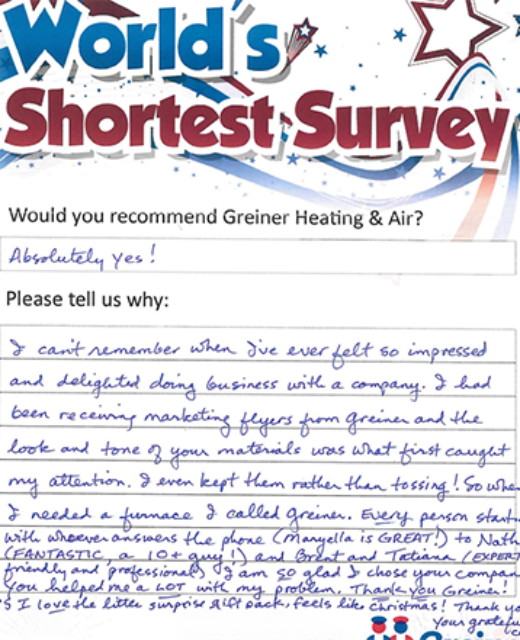 World's
Shortest Survey
Would you recommend Greiner Heating & Air?
Absolutely yes!
Please tell us why:
I can't remember when I've ever felt so impressed
and delighted doing business with a company. I had
been receiving marketing flyers from Greiner and the
look and tone of your materials was what first caught
my attention. I even kept them rather than tossing! So when
I needed a furnace I called Greiner. Every person start
with whoever answers the phone (Maryella is GREAT!) to Nath
(FANTASTIC, a 10+ guy!) and Brent and Tatiana (EXPERT
friendly and professional) I am so glad I chose your compan
You helped me a LOT with my problem. Thank you Greiner!
S I love the litter surprise gift pack, feels like Christmas! Thank yo
Your gratefu